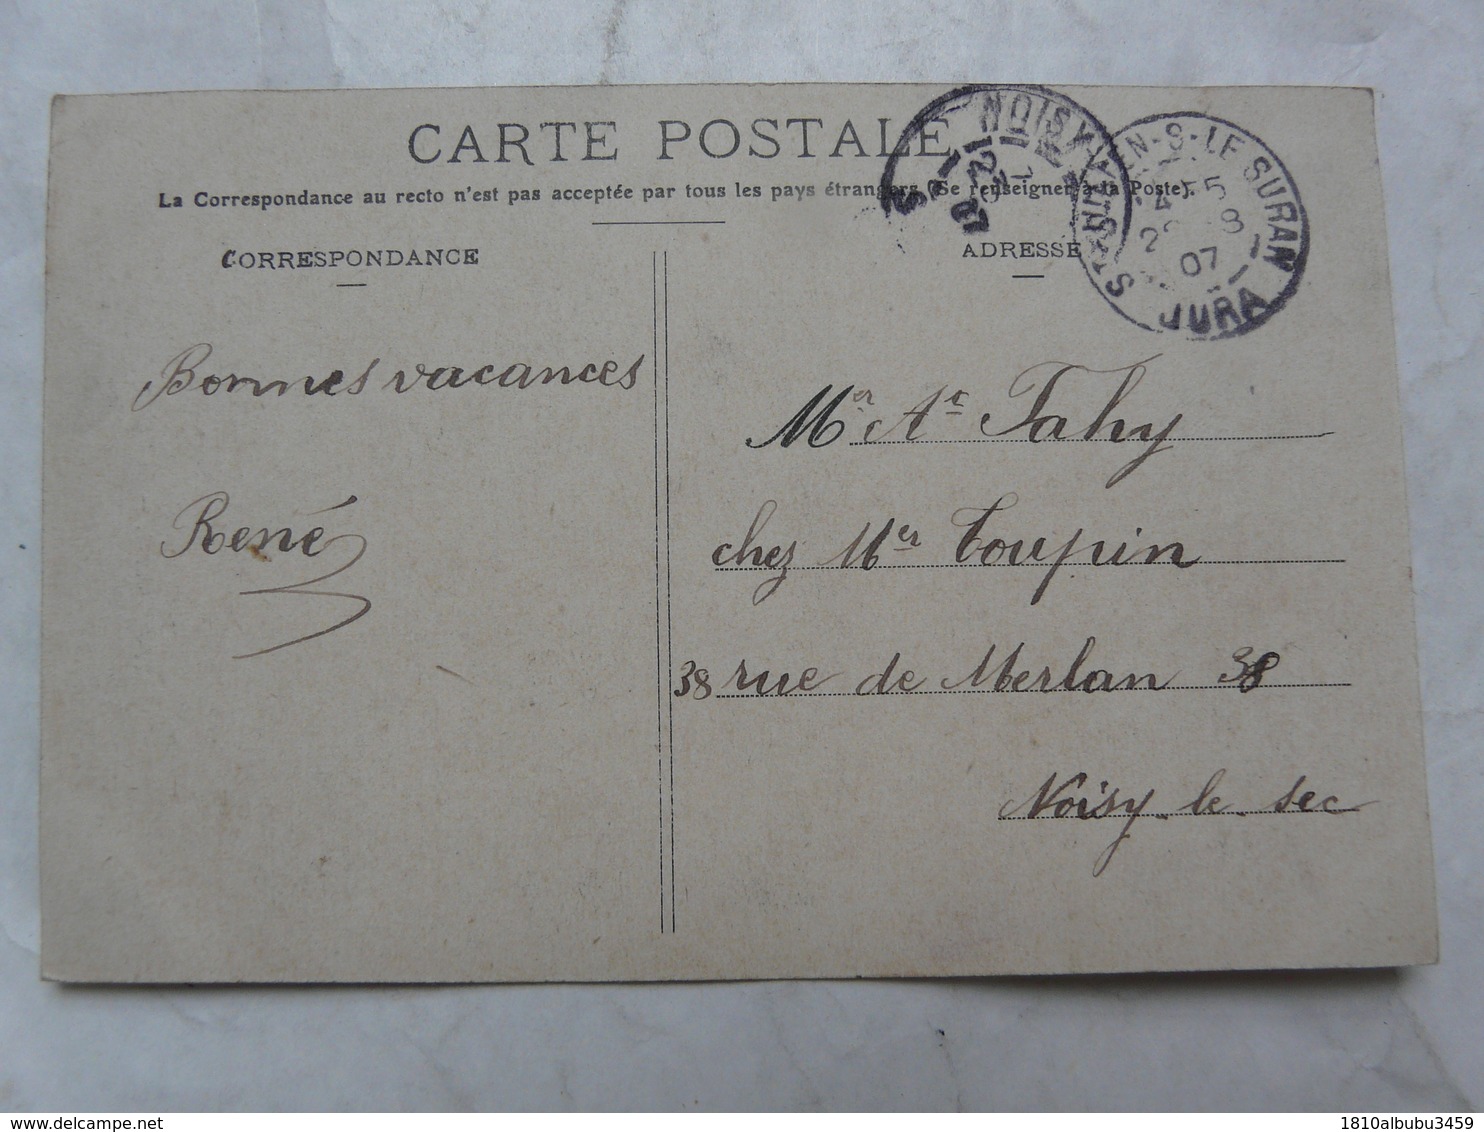 CARTE POSTALE
La Correspondance au recto n'est pas acceptée par tous les pays étrangers (Se renseigner à la Poste).
CORRESPONDANCE
ADRESSE
NOISY-LE-S
ST JULIEN-S-LE SURAN
07
JURA
Bonnes vacances
René
Mr Ae Tahy
chez Mer Toupin
38 rue de Merlan 38
Noisy-le-sec
1810albubu3459